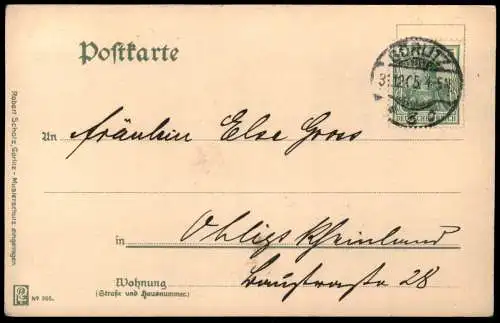 Postkarte
GÖRLITZ
31.12.05. 4-5N
DEUTSCHES REICH
An Fräulein Else Gross
in Ohligs Rheinland
Wohnung Baustrasse 28
(Straße und Hausnummer.)
Robert Scholz, Görlitz - Musterschutz eingetragen
Nº 305.